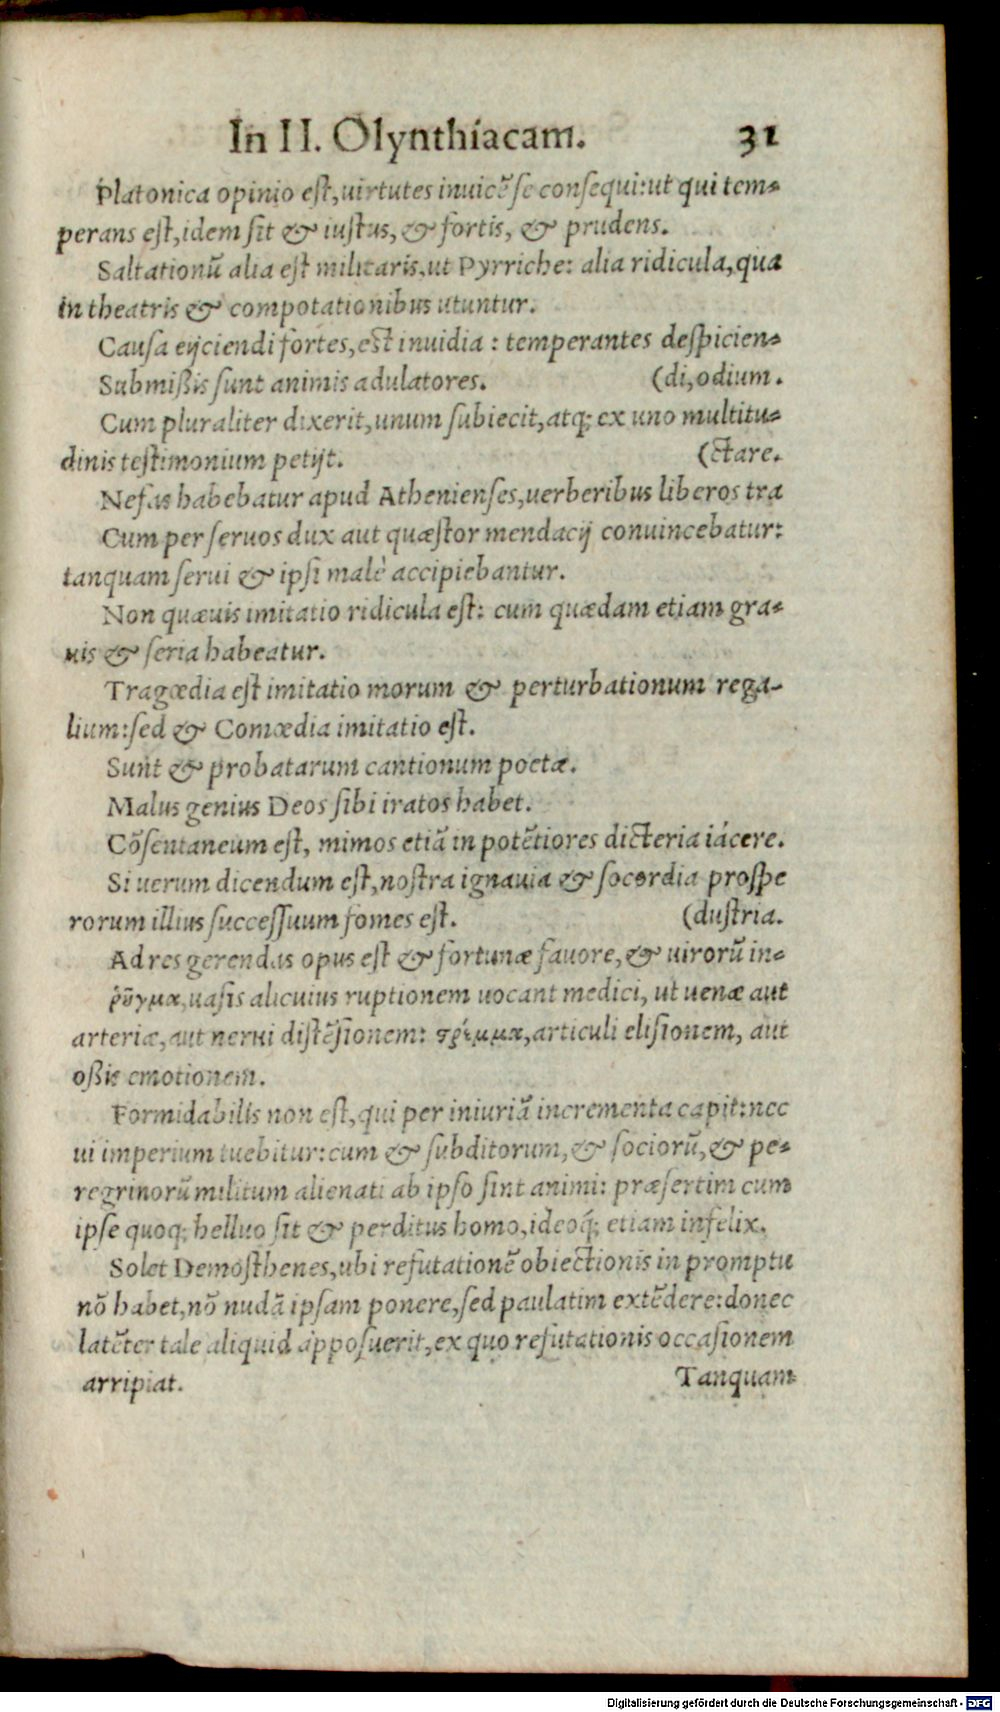 In II. Olynthiacam. 31
Platonica opinio eſt, uirtutes inuicē ſe conſequi: ut qui tem-
perans eſt, idem ſit & iuſtus, & fortis, & prudens.
Saltationū alia eſt militaris, ut Pyrriche: alia ridicula, qua
in theatris & compotationibus utuntur.
Cauſa eijciendi fortes, eſt inuidia : temperantes deſpicien-
Submiſsis ſunt animis adulatores. (di, odium.
Cum pluraliter dixerit, unum ſubiecit, atq; ex uno multitu-
dinis teſtimonium petijt. (ctare.
Nefas habebatur apud Athenienſes, uerberibus liberos tra
Cum per ſeruos dux aut quæſtor mendacij conuincebatur:
tanquam ſerui & ipſi malè accipiebantur.
Non quæuis imitatio ridicula eſt: cum quædam etiam gra-
uis & ſeria habeatur.
Tragœdia eſt imitatio morum & perturbationum rega-
lium: ſed & Comœdia imitatio eſt.
Sunt & probatarum cantionum poetæ.
Malus genius Deos ſibi iratos habet.
Cōſentaneum eſt, mimos etiā in potētiores dicteria iácere.
Si uerum dicendum eſt, noſtra ignauia & ſocordia proſpe
rorum illius ſucceſſuum fomes eſt. (duſtria.
Ad res gerendas opus eſt & fortunæ fauore, & uirorū in-
ῥῆγμα, uaſis alicuius ruptionem uocant medici, ut uenæ aut
arteriæ, aut nerui diſtēſionem: στρέμμα, articuli eliſionem, aut
oſsis emotionem.
Formidabilis non eſt, qui per iniuriā incrementa capit: nec
ui imperium tuebitur: cum & ſubditorum, & ſociorū, & pe-
regrinorū militum alienati ab ipſo ſint animi: præſertim cum
ipſe quoq; helluo ſit & perditus homo, ideoq́; etiam infelix.
Solet Demoſthenes, ubi refutationē obiectionis in promptu
nō habet, nō nudā ipſam ponere, ſed paulatim extēdere: donec
latēter tale aliquid appoſuerit, ex quo refutationis occaſionem
arripiat. Tanquam
Digitalisierung gefördert durch die Deutsche Forschungsgemeinschaft - DFG